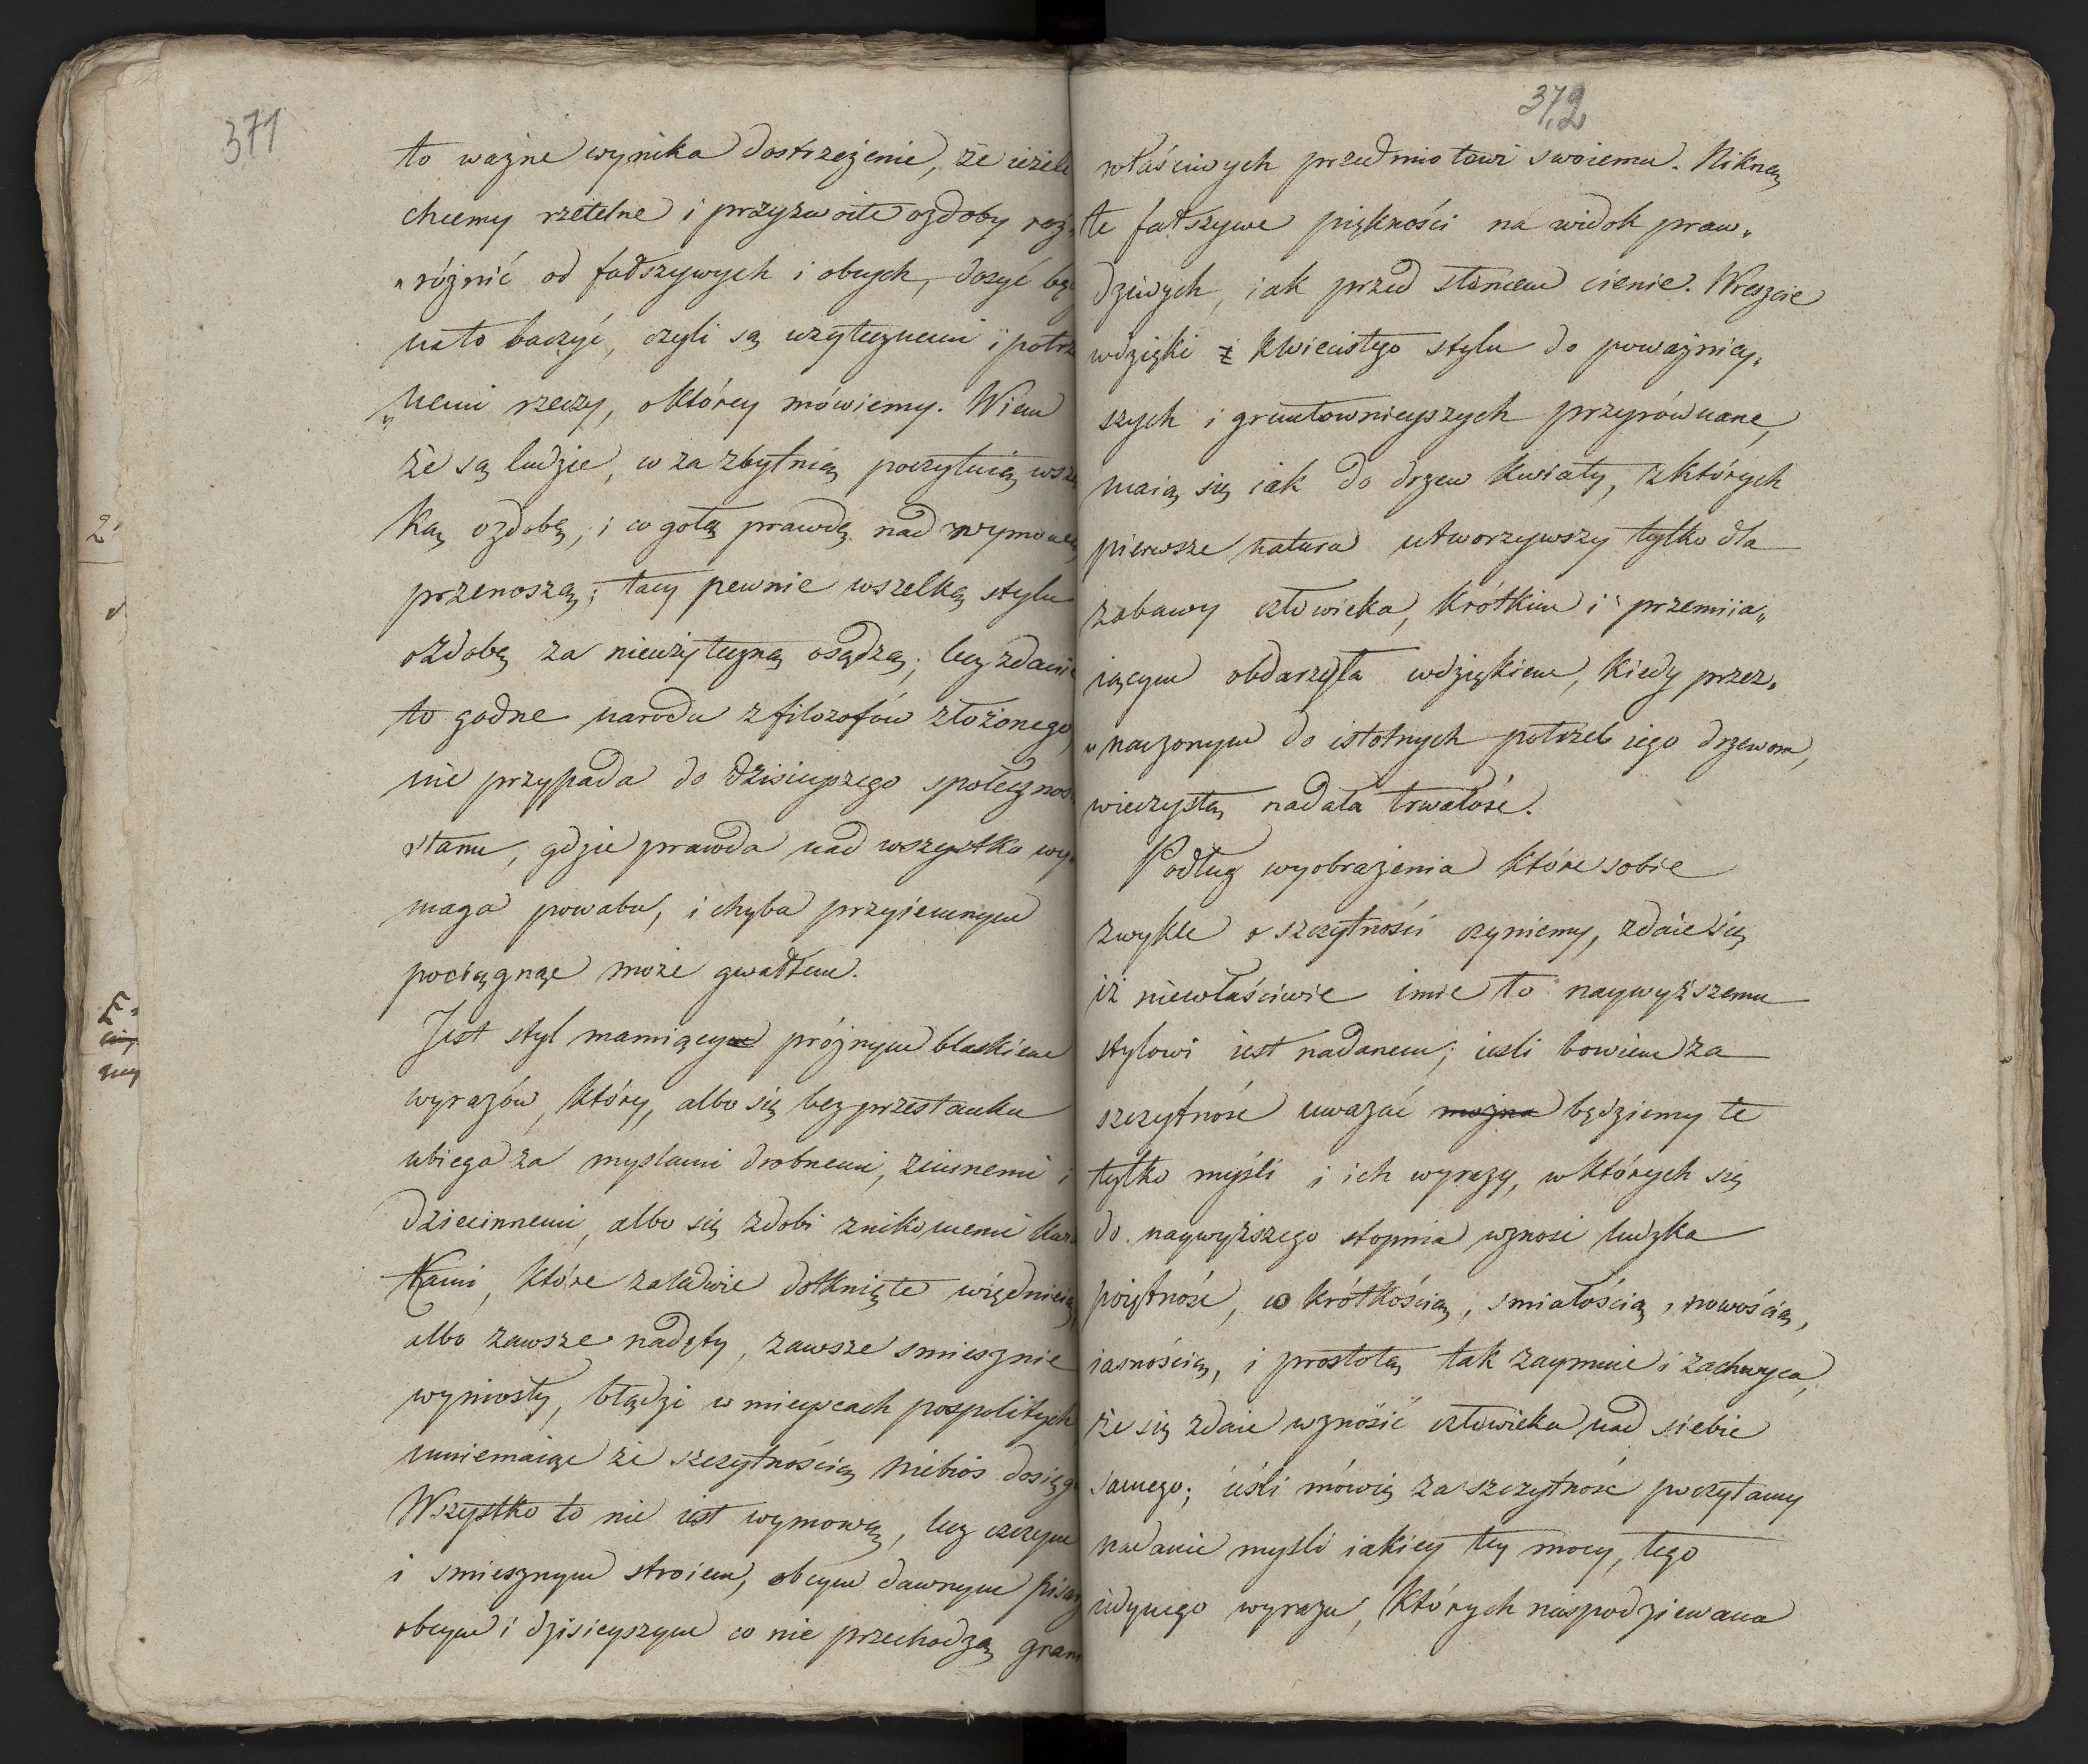 371
to ważne wynika dostrzeżenie, że ieżele
chcemy rzetelne i przyzwoite ozdoby roz„
„różnić od fałszywych i obcych, dosyć bę
na to baczyć, czyli są użytecznemi i potrz
„nemi rzeczy, o którey mówiemy. Wiem
że są ludzie, co za zbytnią poczytuią wsze
ką ozdobę, i co gołą prawdę nad wymowę
przenoszą; tacy pewnie wszelką stylu
ozdobę za nieużyteczną osądzą; lecz zdanie
to godne narodu z filozofów złożonego,
nie przypada do dzisieyszego społecznos
stanu, gdzie prawda nad wszystko wy„
maga powabu, i chyba przyiemnym
pociągnąć może gwałtem.
Jest styl mamiącym próżnym blaskiem
wyrazów, który, albo się bez przestanku
ubiega za myslami drobnemi, ziewnemi i
dziecinnemi, albo się zdobi znikomemi kwia
tkami, które zaledwie dotknięte więdnieią,
albo zawsze nadęty, zawsze smiesznie
wyniosły, błądzi w mieyscach pospolitych
mniemaiąc że szczytnością niebios dosięga
Wszystko to nie iest wymową, lecz czczym
i smiesznym stroiem, obcym dawnym pisarz
obcym i dzisieyszym co nie przechodzą gran
2'
372
właściwych przedmiotowi swoiemu. Nikną
te fałszywe piękności na widok praw„
dziwych, iak przed słońcem cienie. Wreszcie
wdzięki z kwiecistego stylu do poważniey„
szych i gruntownieyszych przyrównane,
maią się iak do drzew kwiaty, z których
pierwsze natura utworzywszy tylko dla
zabawy człowieka, krótkim i przemiia„
iącym obdarzyła wdziękiem, kiedy przez„
„naczonym do istotnych potrzeb iego drzewom,
wieczystą nadała trwałość.
Podług wyobrażenia które sobie
zwykle o szczytności czyniemy, zdaie się
iż niewłaściwie imie to naywyższemu
stylowi iest nadanem; iesli bowiem za
szczytność uważać można będziemy te
tylko myśli i ich wyrazy, w których się
do naywyższego stopnia wznosi ludzka
poiętność, co krótkością, smiałością, nowością,
iasnością, i prostotą tak zaymuie i zachwyca,
że się zdaie wznosić człowieka nad siebie
samego; ieśli mówię za szczytność poczytamy
nadanie myśli iakiey tey mocy, tego
iedynego wyrazu, których niespodziewana